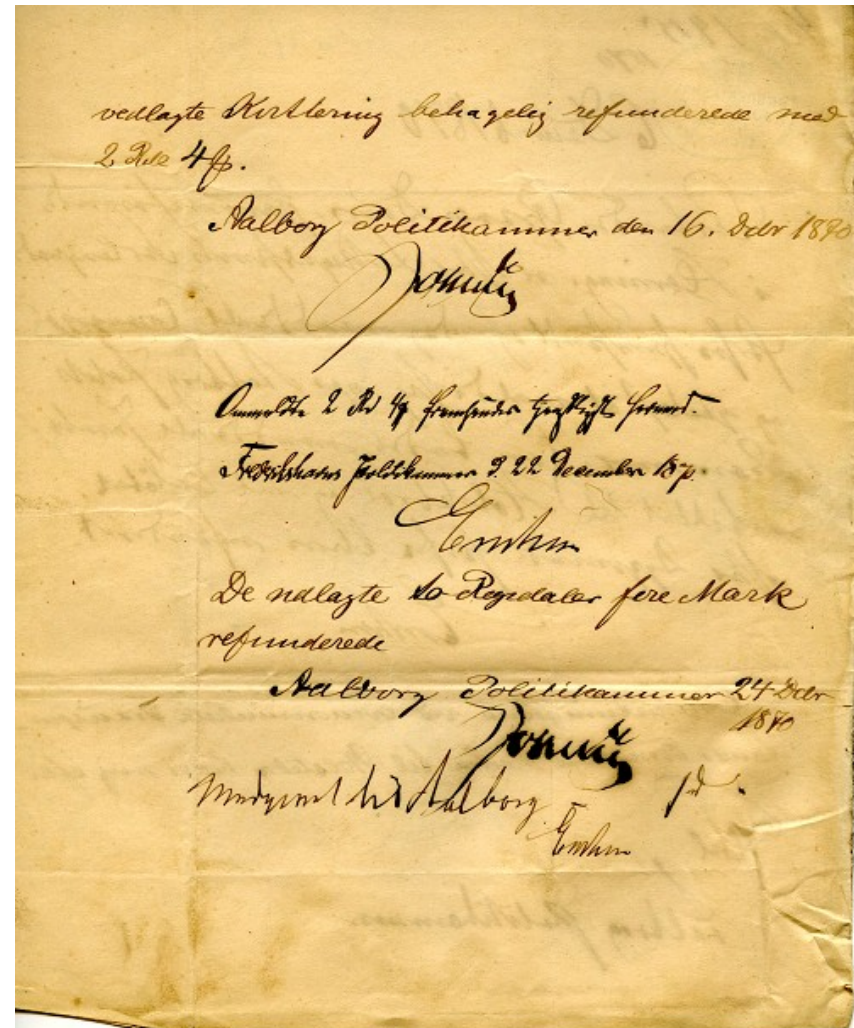 vedlagte Kvittering behagelig refunderede med
2 Rd 4 ß.
Aalborg Politikammer den 16. Dcbr 1870
Ommeldte 2 Rd 4 ß fremsendes hermed.
Frederikshavns Politikammer d. 22 December 1870.
De ndlagte to Rigsdaler fire Mark
refunderede
Aalborg Politikammer 24 Dcbr
1870
Aalborg